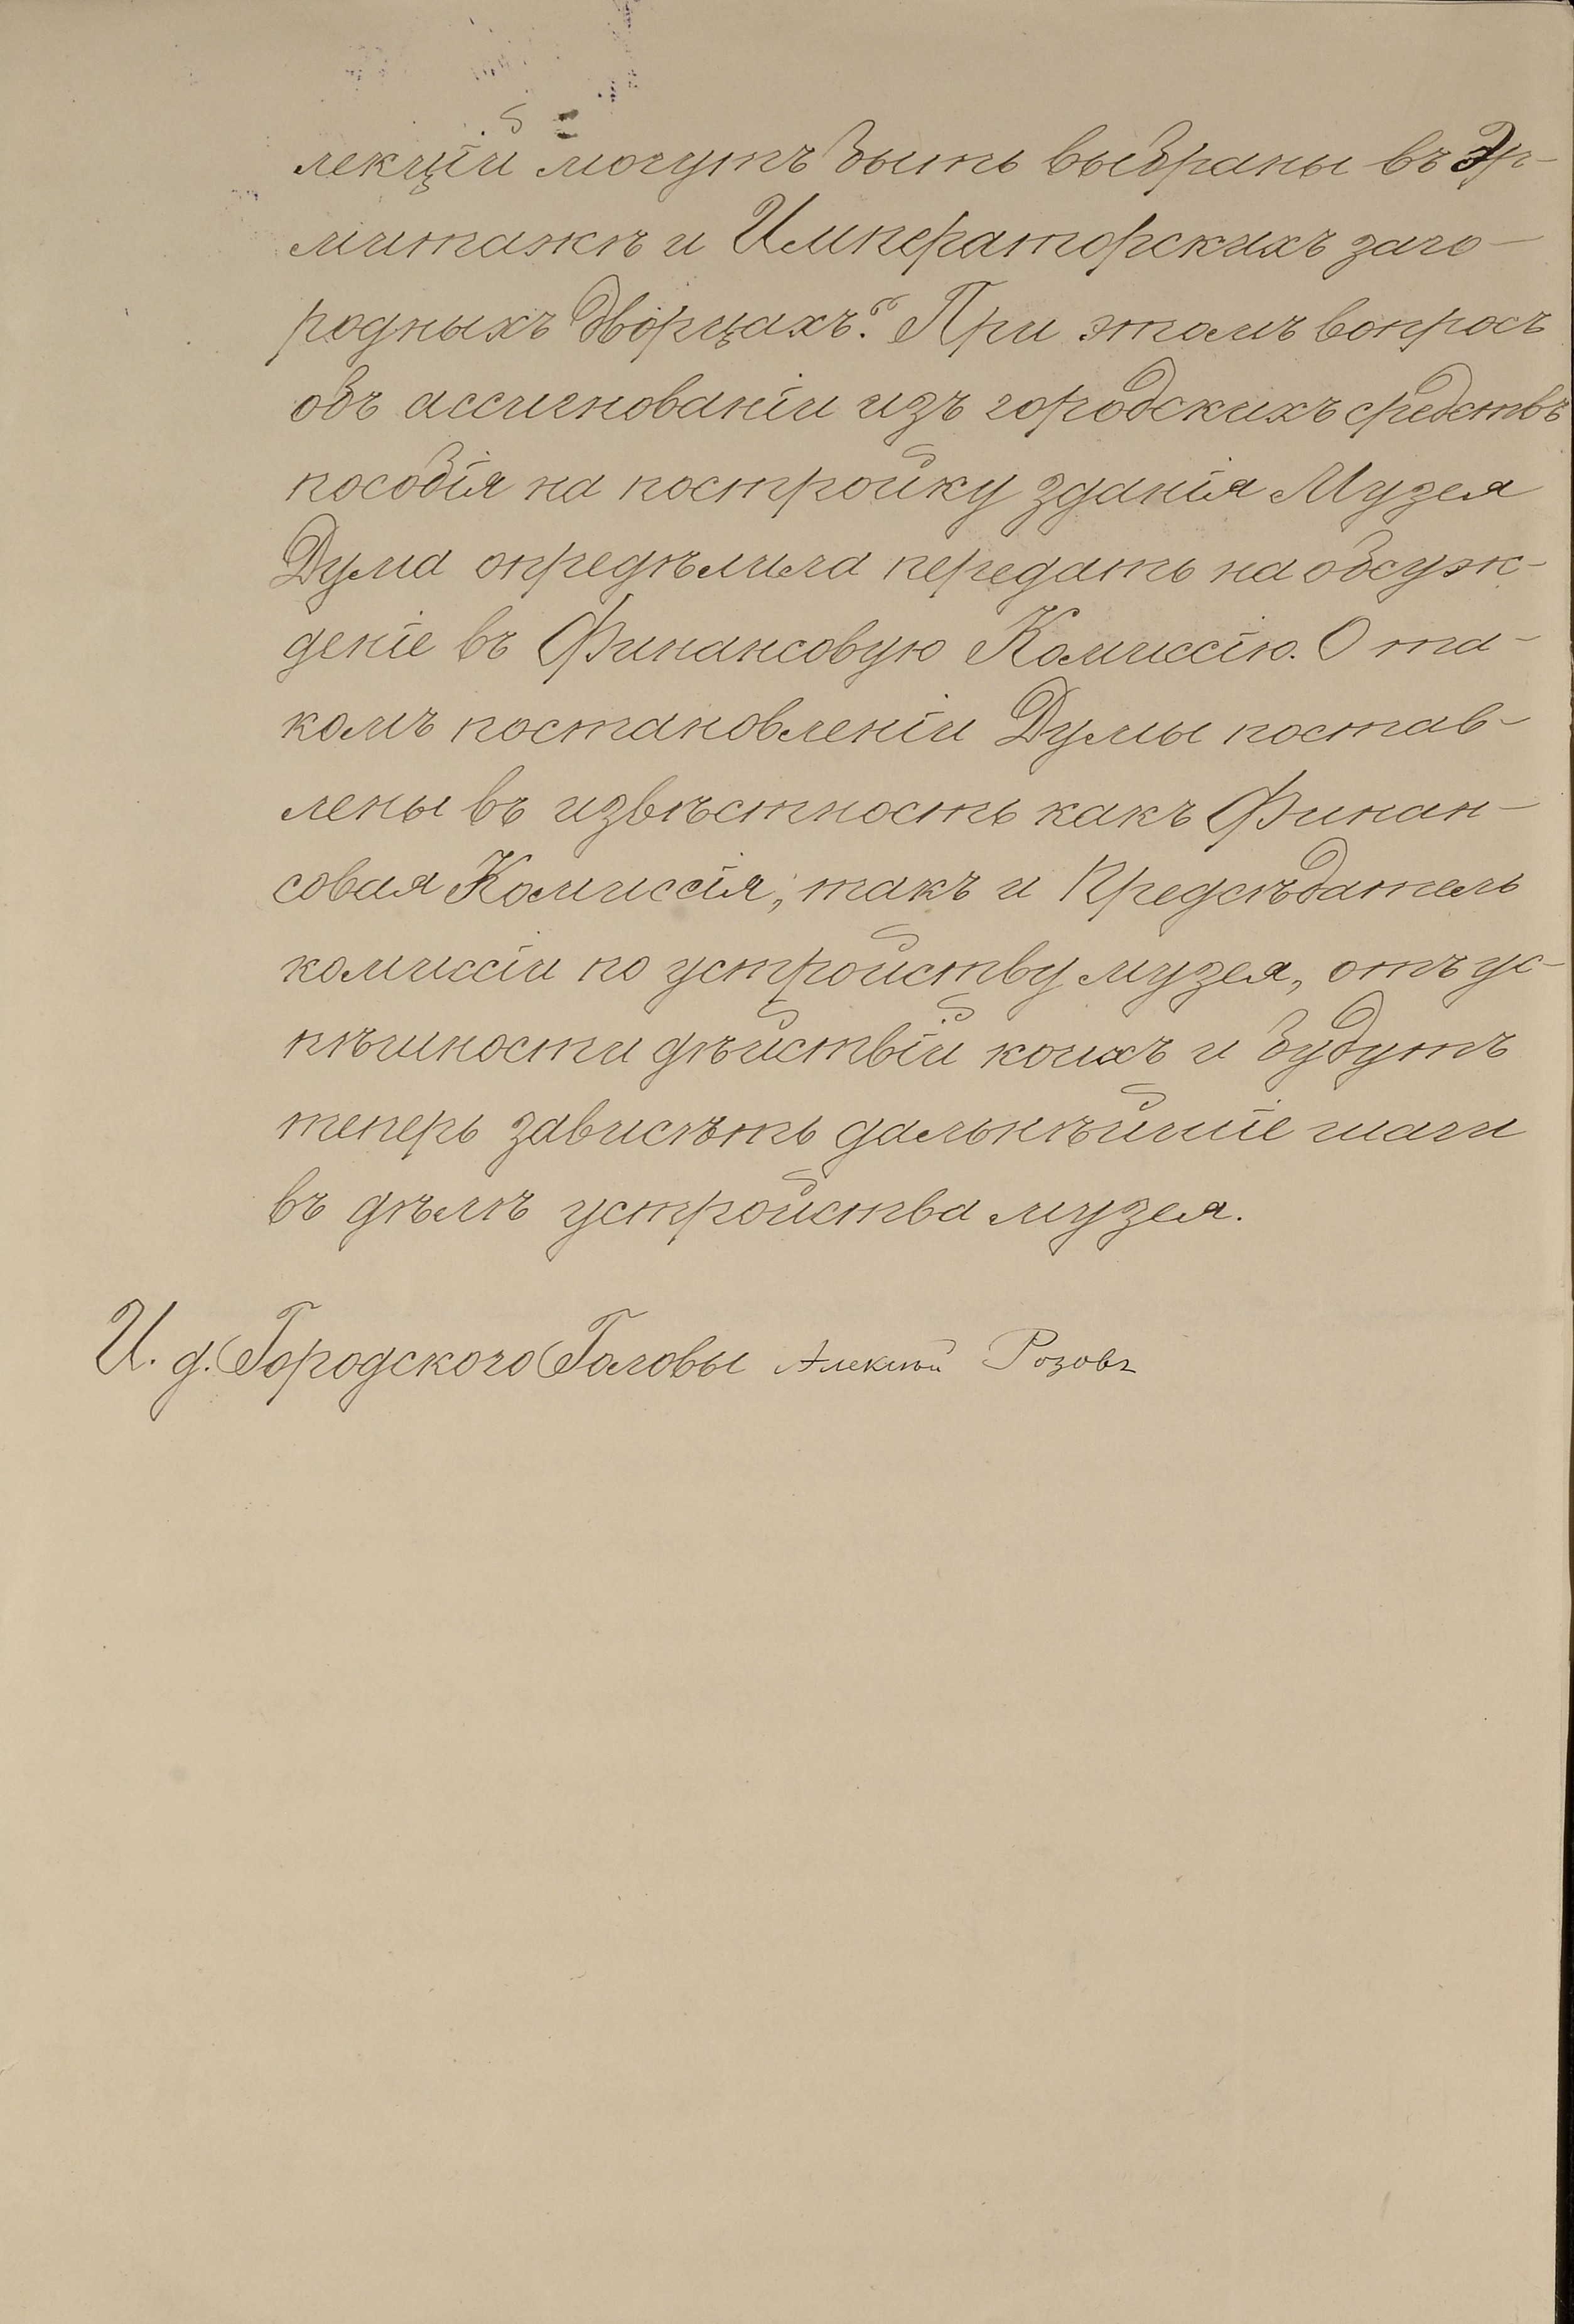 лекцій могутъ быть выбраны въ Эр-
митажѣ и Императорскихъ заго-
родныхъ дворцахъ." При этомъ вопросъ
объ ассигнованіи изъ городскихъ средствъ
пособія на постройку зданія Музея
Дума опредѣлила передать на обсуж-
деніе въ Финансовую Комиссію. О та-
комъ постановленіи Думы постав-
лены въ извѣстность какъ Финан-
совая Комиссія, такъ и Предсѣдатель
комиссіи по устройству музея, отъ ус-
пѣшности дѣйствій коихъ и будутъ
теперь зависѣть дальнѣйшіе шаги
въ дѣлѣ устройства музея.
И. д. Городского Головы Алексѣй Розовъ